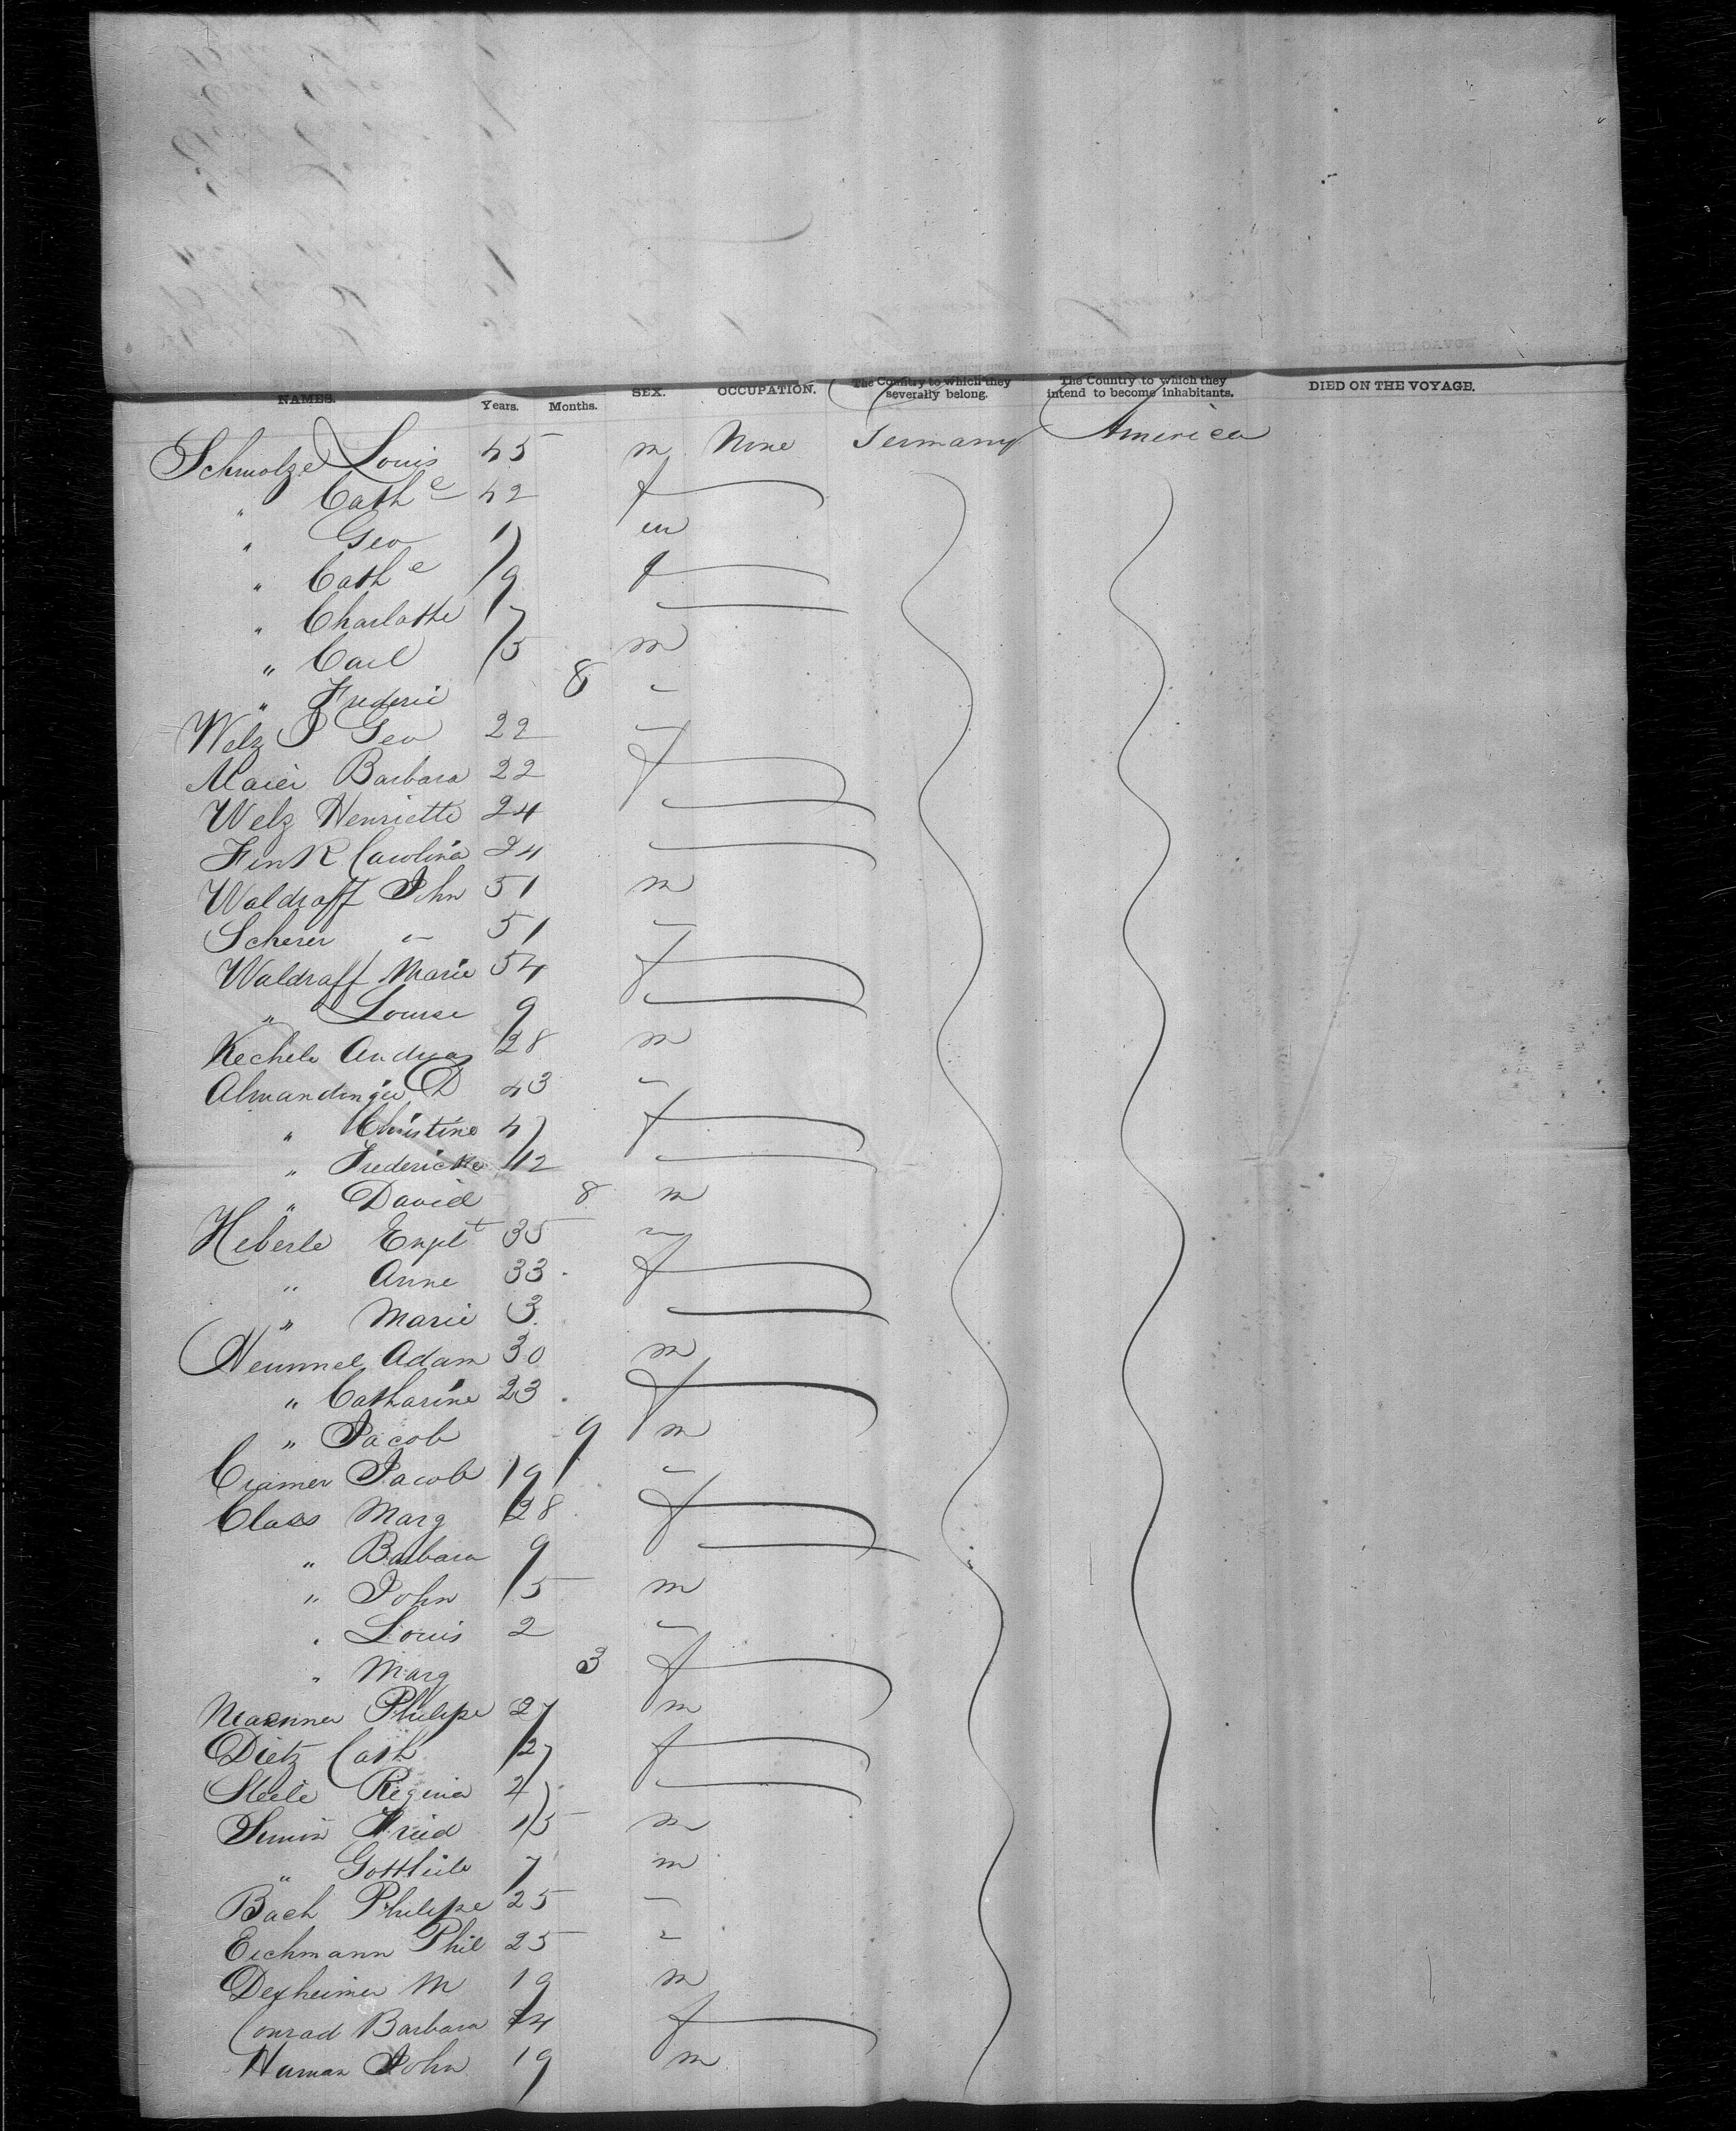 NAMES. Years. Months. SEX. OCCUPATION. The Country to which they severally belong. The Country to which they intend to become inhabitants. DIED ON THE VOYAGE.
Schmolze Louis 45 m None Germany America
" Cathe 42 f
" Geo 17 m
" Cathe 9 f
" Charlotte 7
" Carl 5 m
" Frederic 8 "
Welz J Geo 22 "
Maier Barbara 22 f
Welz Henriette 24
Fink Carolina 24
Waldraff John 51 m
Scherer " 51 "
Waldraff Marie 54 f
" Louise 9
Kechele Andreas 28 m
Almandinger D 43 "
" Christine 47 f
" Fredericke 12
" David 8 m
Heberle Engt 35 "
" Anne 33 f
" Marie 3
Neummel Adam 30 m
" Catharine 23 f
" Jacob 9 m
Cramer Jacob 19 "
Class Marg 28 f
" Barbara 9
" John 5 m
" Louis 2 "
" Marg 3 f
Maenner Philipp 27 m
Dietz Cath 27 f
Steile Regina 27
Simon Fried 15 m
" Gottlieb 7 m
Bach Philipp 25 "
Eichmann Phil 25 "
Dexheimer M 19 m
Conrad Barbara 24 f
Haman John 19 m